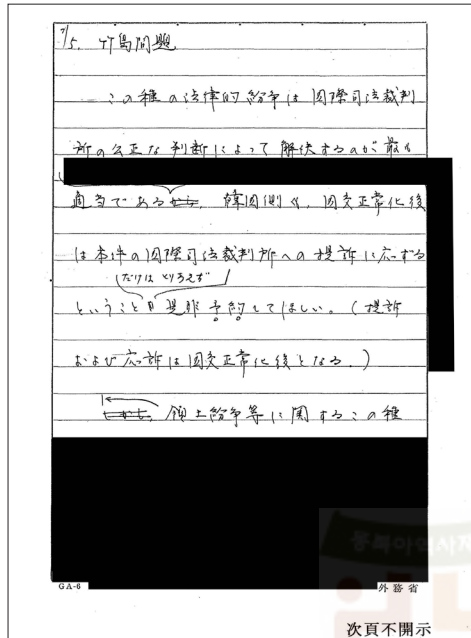 15. 竹島問題
この種の法律的紛争は国際司法裁判
所の公正な判断によって解決するのが最も
適当であるから、韓国側も、国交正常化後
は本件の国際司法裁判所への提訴に応ずる
だけはとりあえず
ということ 是非予約してほしい。(提訴
および応訴は国交正常化後となる。)
しかし、領土紛争等に関するこの種
GA-6
外務省
次頁不開示